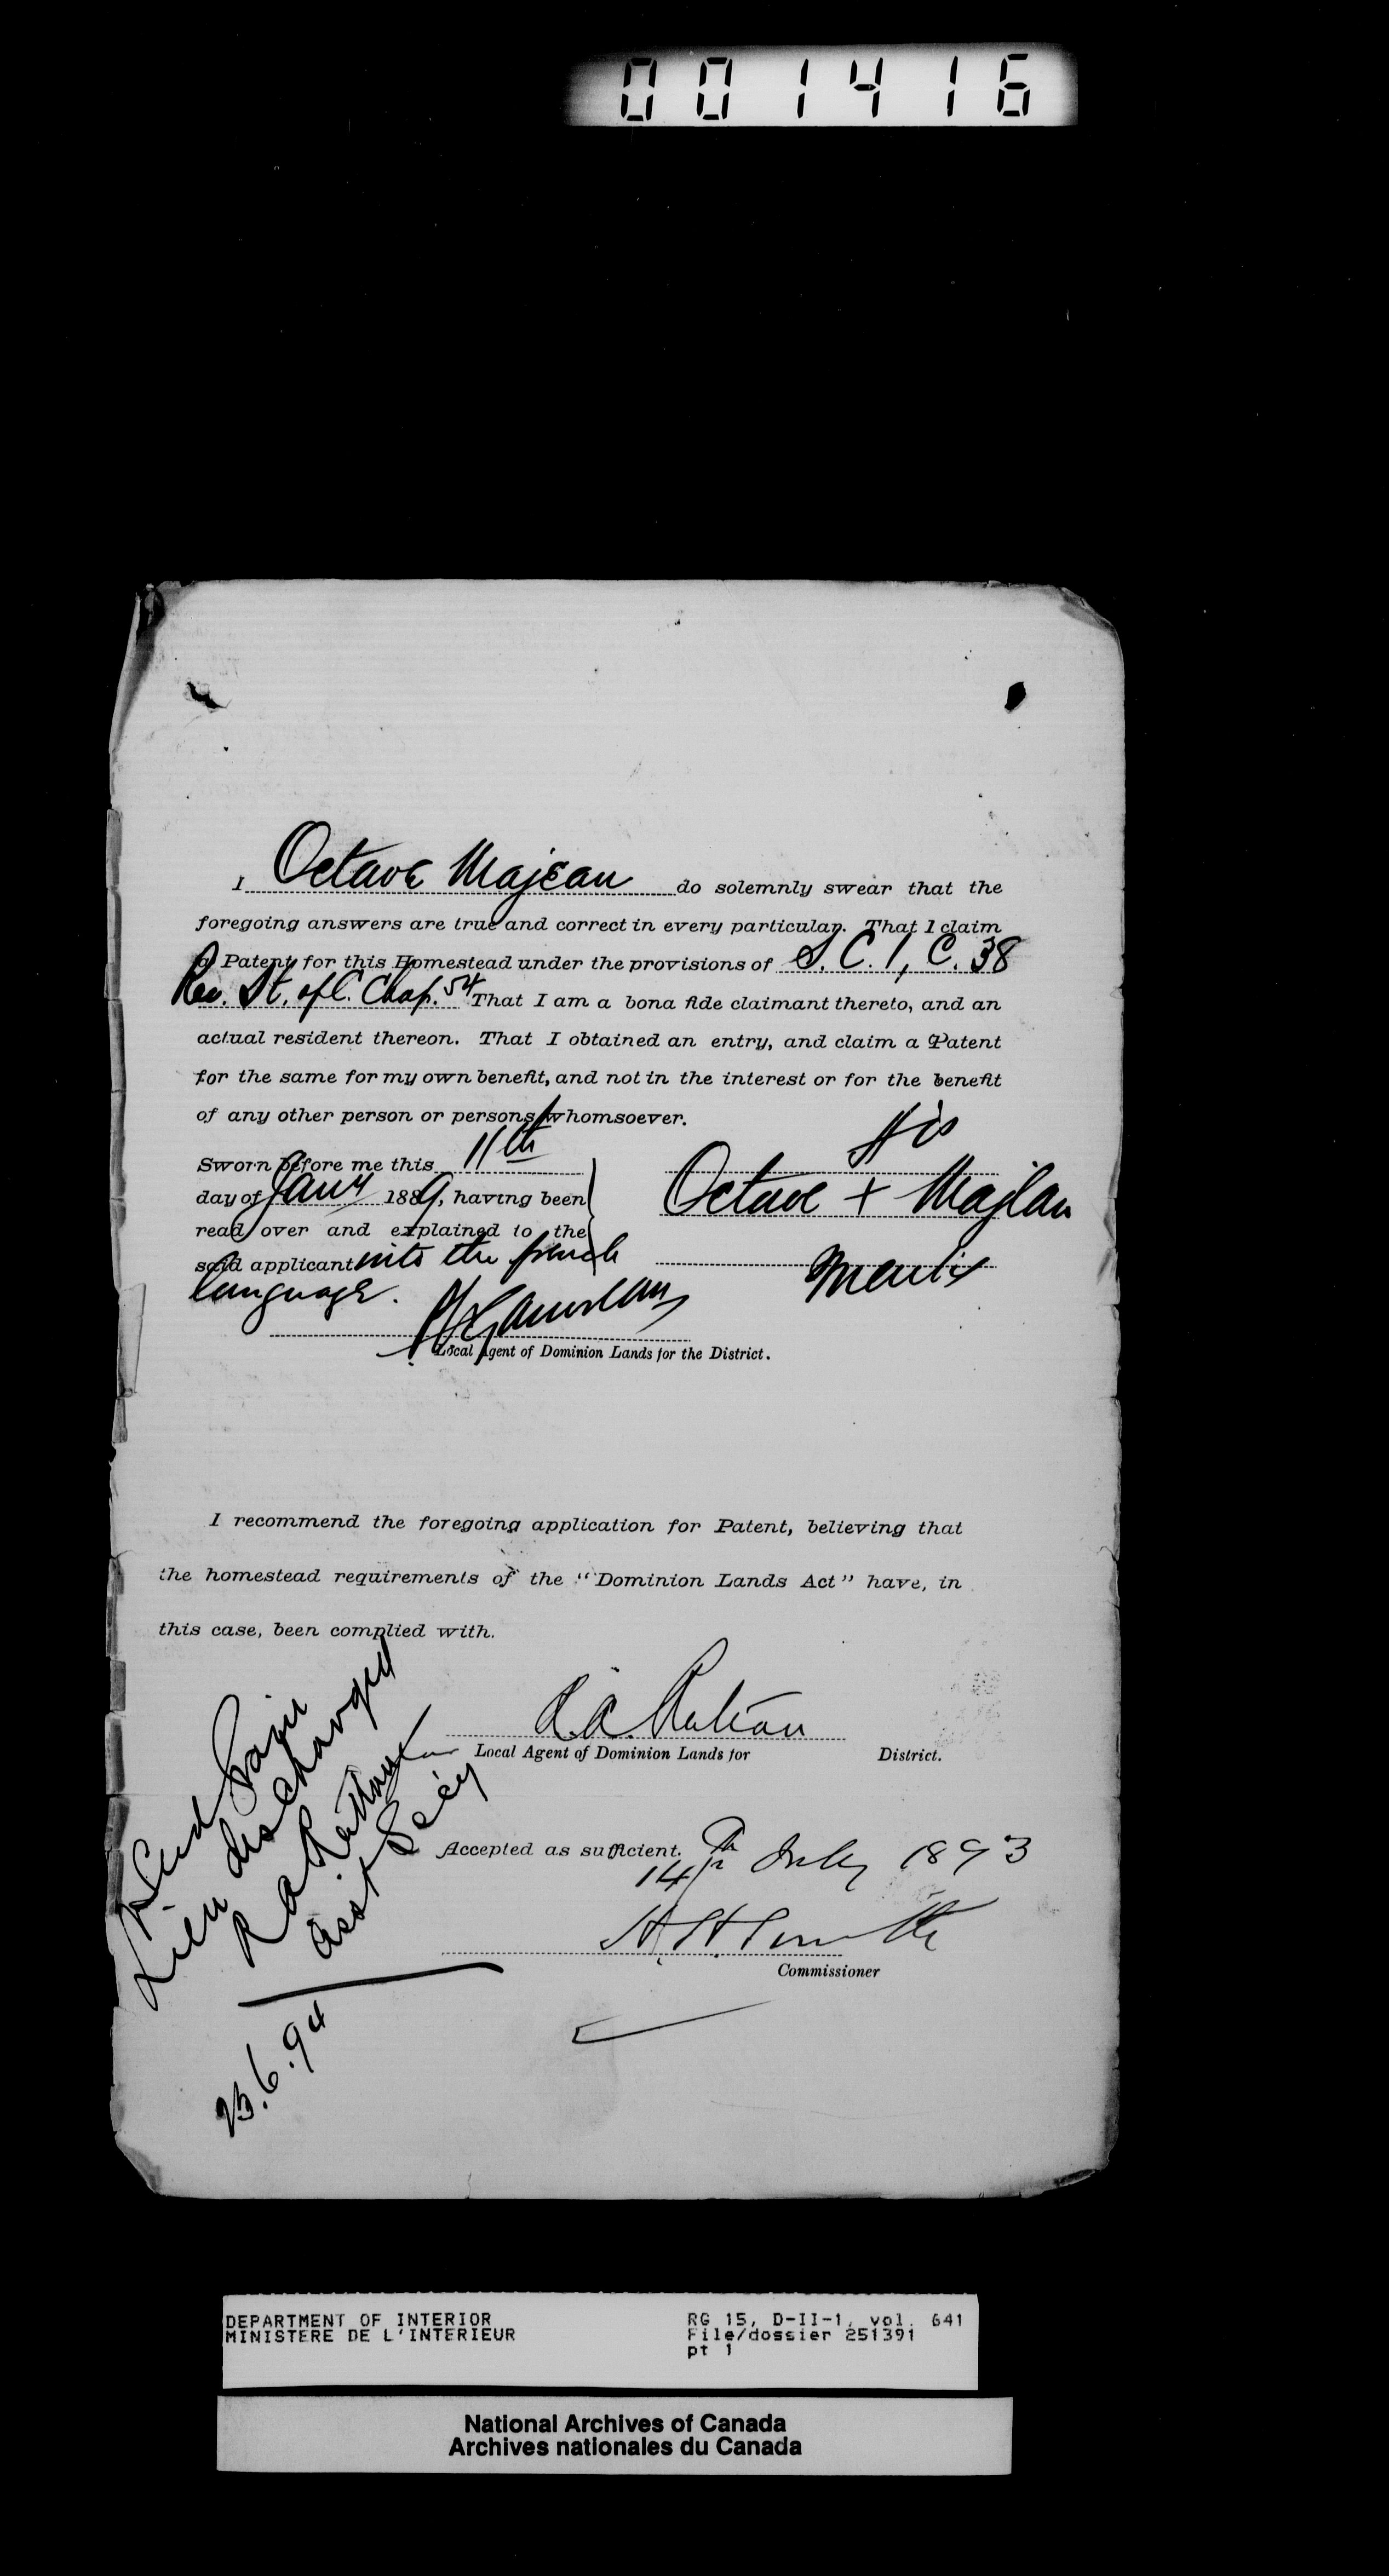 001416
I Octave Majeau do solemnly swear that the
foregoing answers are true and correct in every particular. That I claim
a Patent for this Homestead under the provisions of S. C. 1, C. 38
Rev. St. of C. Chap. 54 That I am a bona fide claimant thereto, and an
actual resident thereon. That I obtained an entry, and claim a Patent
for the same for my own benefit, and not in the interest or for the benefit
of any other person or persons whomsoever.
Sworn before me this 11th
day of Jany 1889, having been
read over and explained to the
said applicant into the french
language.
His
Octave + Majeau
mark
Local Agent of Dominion Lands for the District.
I recommend the foregoing application for Patent, believing that
the homestead requirements of the "Dominion Lands Act" have, in
this case, been complied with.
R. A. Ruttan
Local Agent of Dominion Lands for District.
Lien discharged
R A Ruttan
asst Secy
23.6.94
Accepted as sufficient.
14th July 1893
H. H. Smith
Commissioner
DEPARTMENT OF INTERIOR
MINISTERE DE L'INTERIEUR
RG 15, D-II-1, vol. 641
File/dossier 251391
pt 1
National Archives of Canada
Archives nationales du Canada